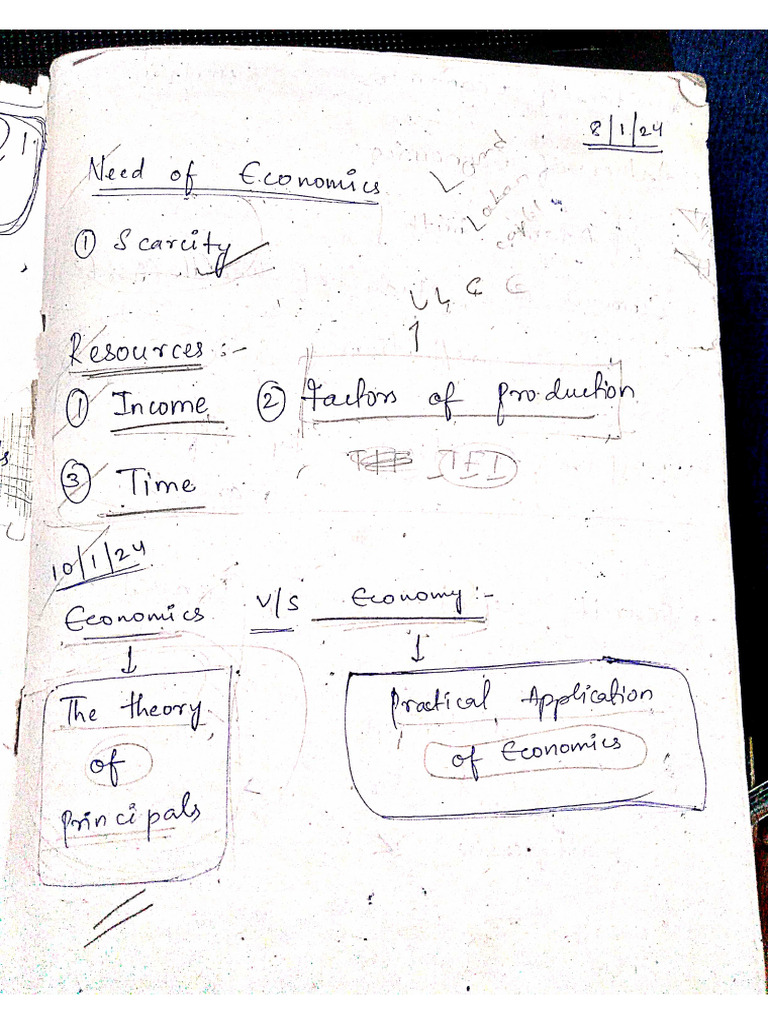 8/1/24
Need of Economics
Land
Labour
① Scarcity
Resources :-
① Income ② Factors of production
③ Time
10/1/24
Economics V/S Economy :-
↓ ↓
The theory Practical Application
of of Economics
Principals